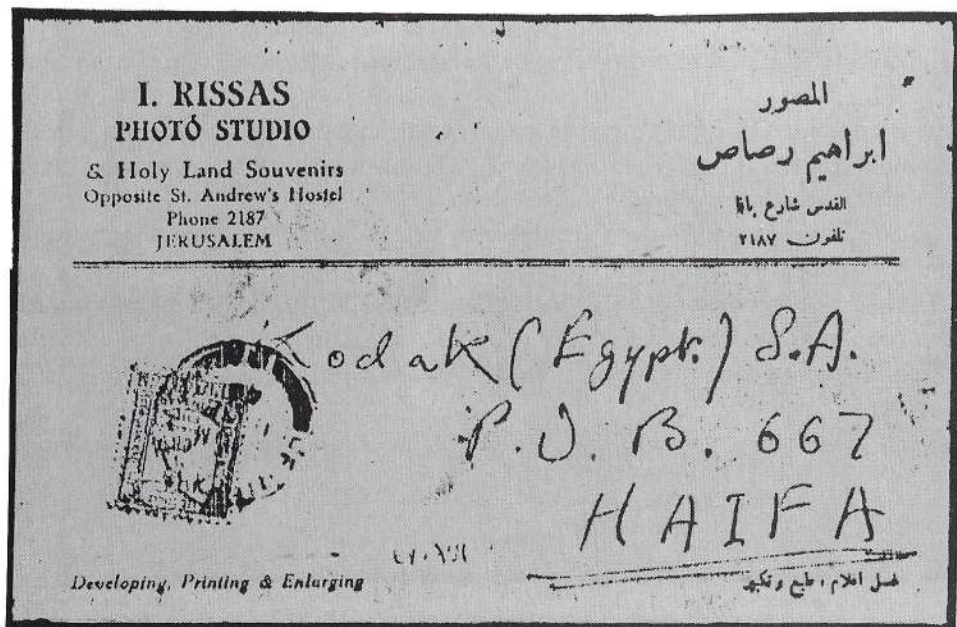 I. RISSAS
PHOTÓ STUDIO
& Holy Land Souvenirs
Opposite St. Andrew's Hostel
Phone 2187
JERUSALEM
المصور
ابراهيم رصاص
القدس شارع
تلفون ٢١٨٧
Kodak (Egypt.) S.A.
P.O.B. 667
HAIFA
Developing, Printing & Enlarging
غسل افلام ، طبع وتكبير